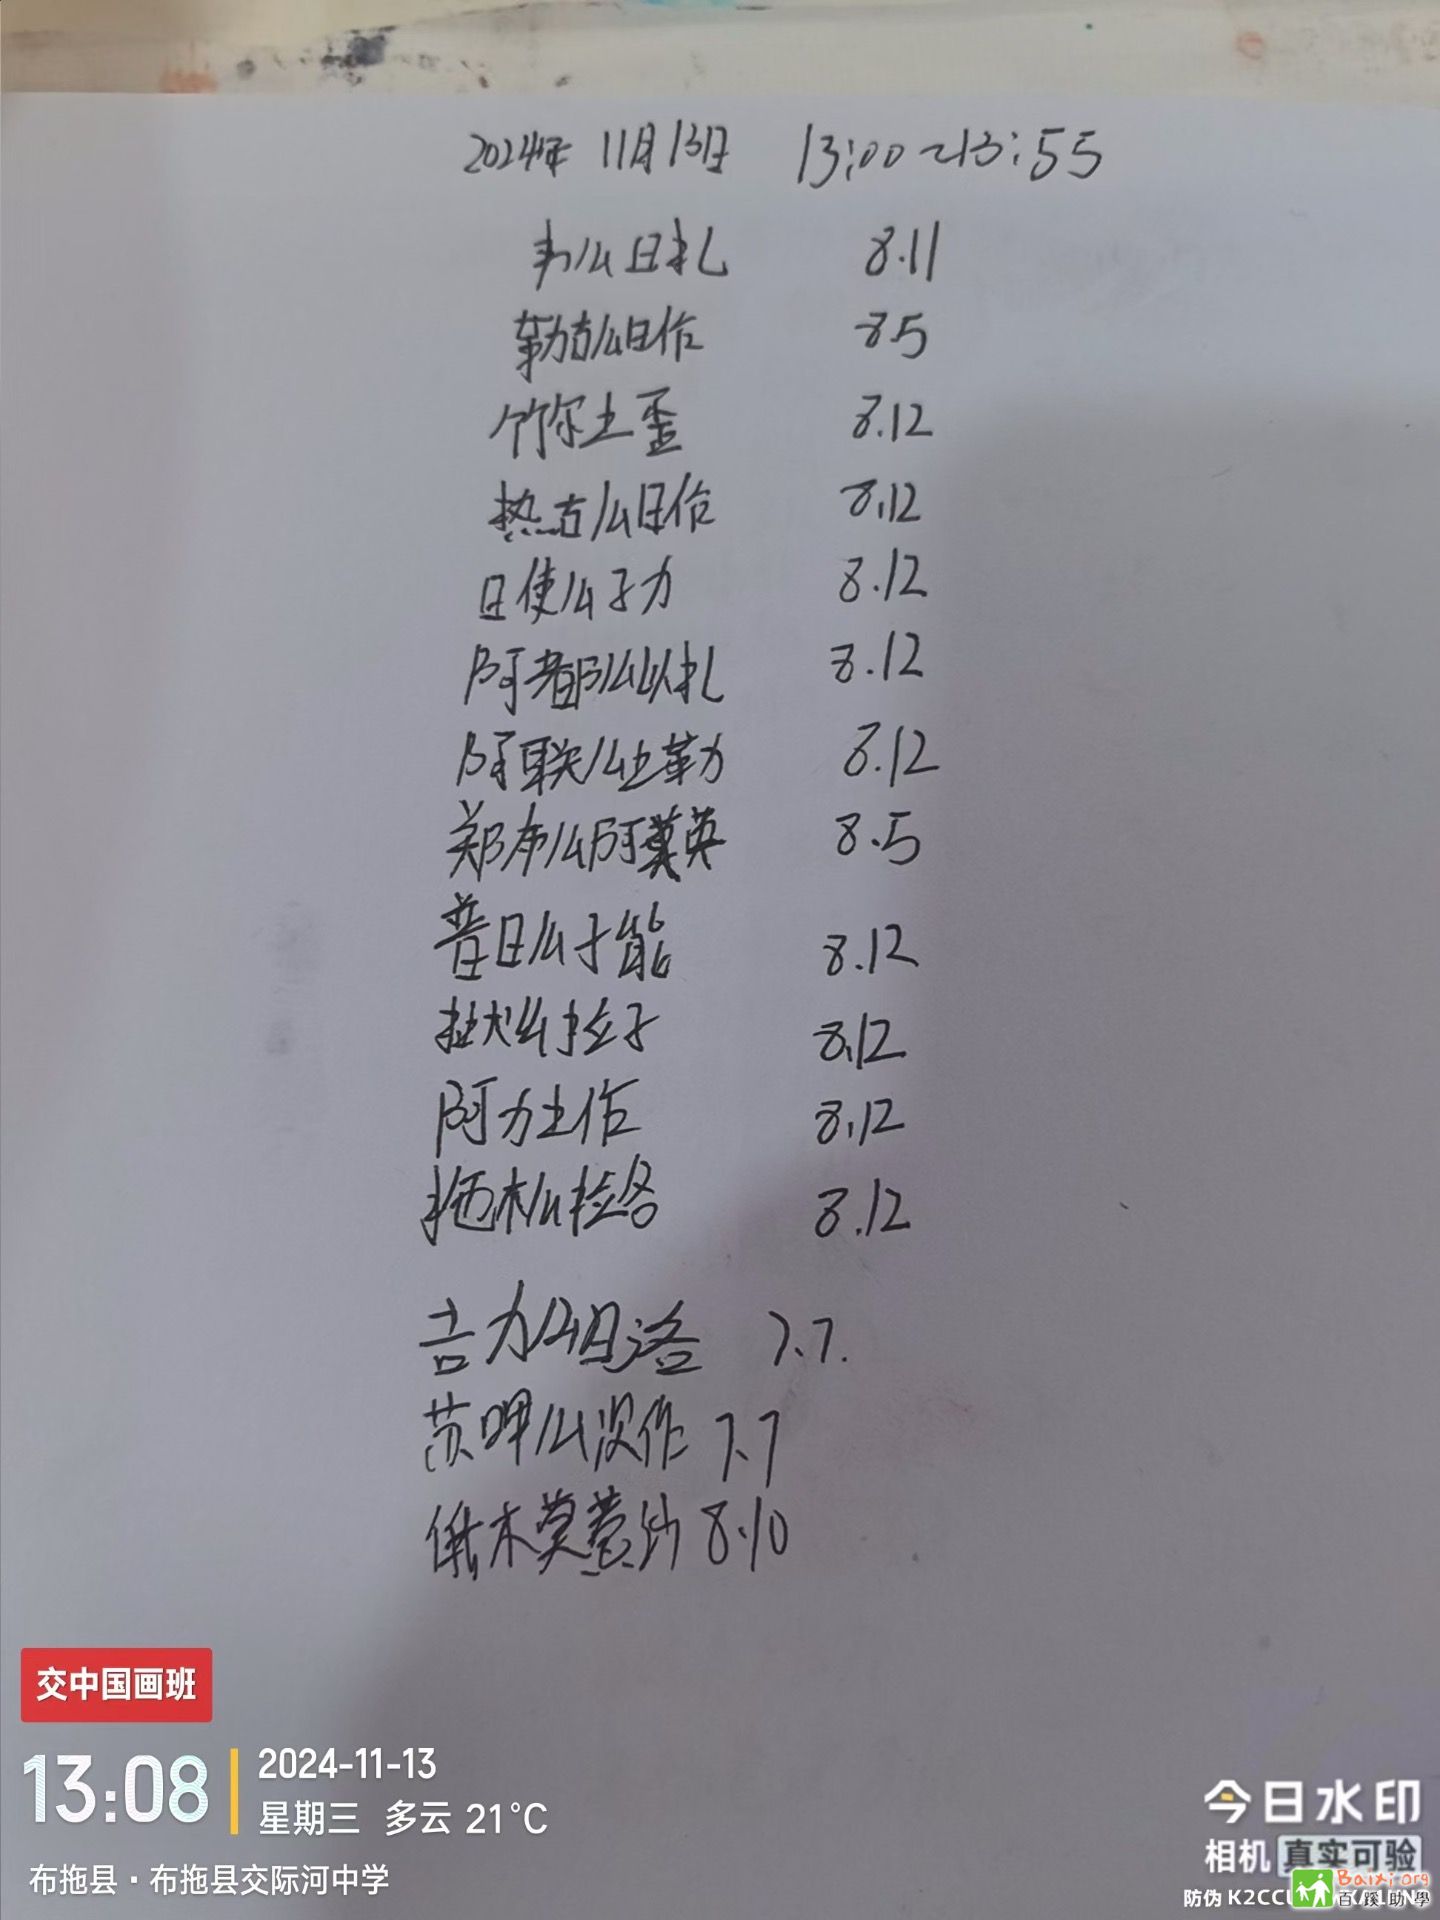 2024年 11月13日 13:00~13:55
么日札 8.11
勒古么日作 8.5
竹尔土歪 8.12
热古么日作 8.12
日使么子力 8.12
阿都么以札 8.12
阿联么土勒 8.12
郑布么阿莫英 8.5
昔日么才能 8.12
么拉子 8.12
阿力土作 8.12
么拉各 8.12
吉力么日洛 7.7.
苏呷么次作 7.7
俄木莫惹 8.10
交中国画班
13:08
2024-11-13
星期三 多云 21°C
布拖县·布拖县交际河中学
今日水印
相机 真实可验
防伪
Baixi.org
百蹊助學